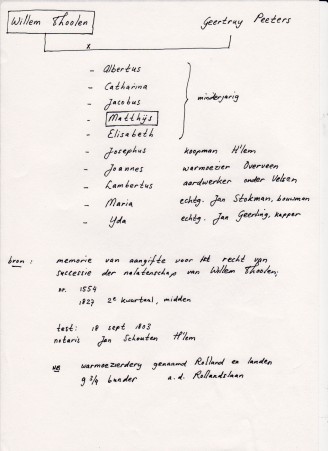 Willem Thoolen Geertruy Peeters
x
- Albertus
- Catharina
- Jacobus
- Matthijs
- Elisabeth
minderjarig
- Josephus koopman H'lem
- Joannes warmoezier Overveen
- Lambertus aardwerker onder Velsen
- Maria echtg. Jan Stokman, bouwman
- Yda echtg. Jan Geerling, kapper
bron: memorie van aangifte voor het recht van
successie der nalatenschap van Willem Thoolen;
nr. 1554
1827 2e kwartaal, midden
test: 18 sept 1803
notaris Jan Schouten H'lem
NB warmoezierdery genaamd Rolland en landen
g 3/4 bunder a.d. Rollandslaan